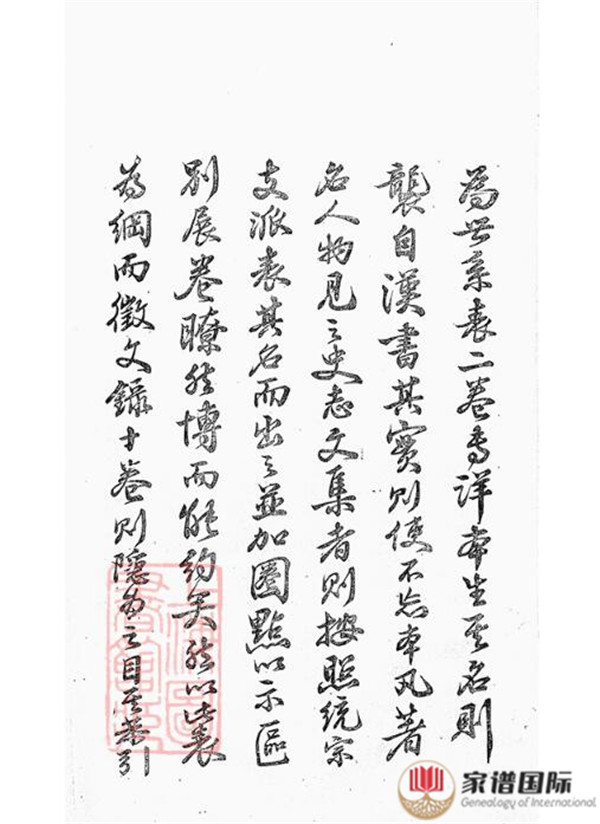 為世系表二卷專詳本生其名則
襲自漢書其實則使不忘本凡著
名人物見之史志文集者則按照統宗
支派表其名而出之並加圈點以示區
別展卷瞭然博而能約矣然以此表
為綱而徵文錄十卷則隱為之目其希引
家谱国际
Genealogy of International